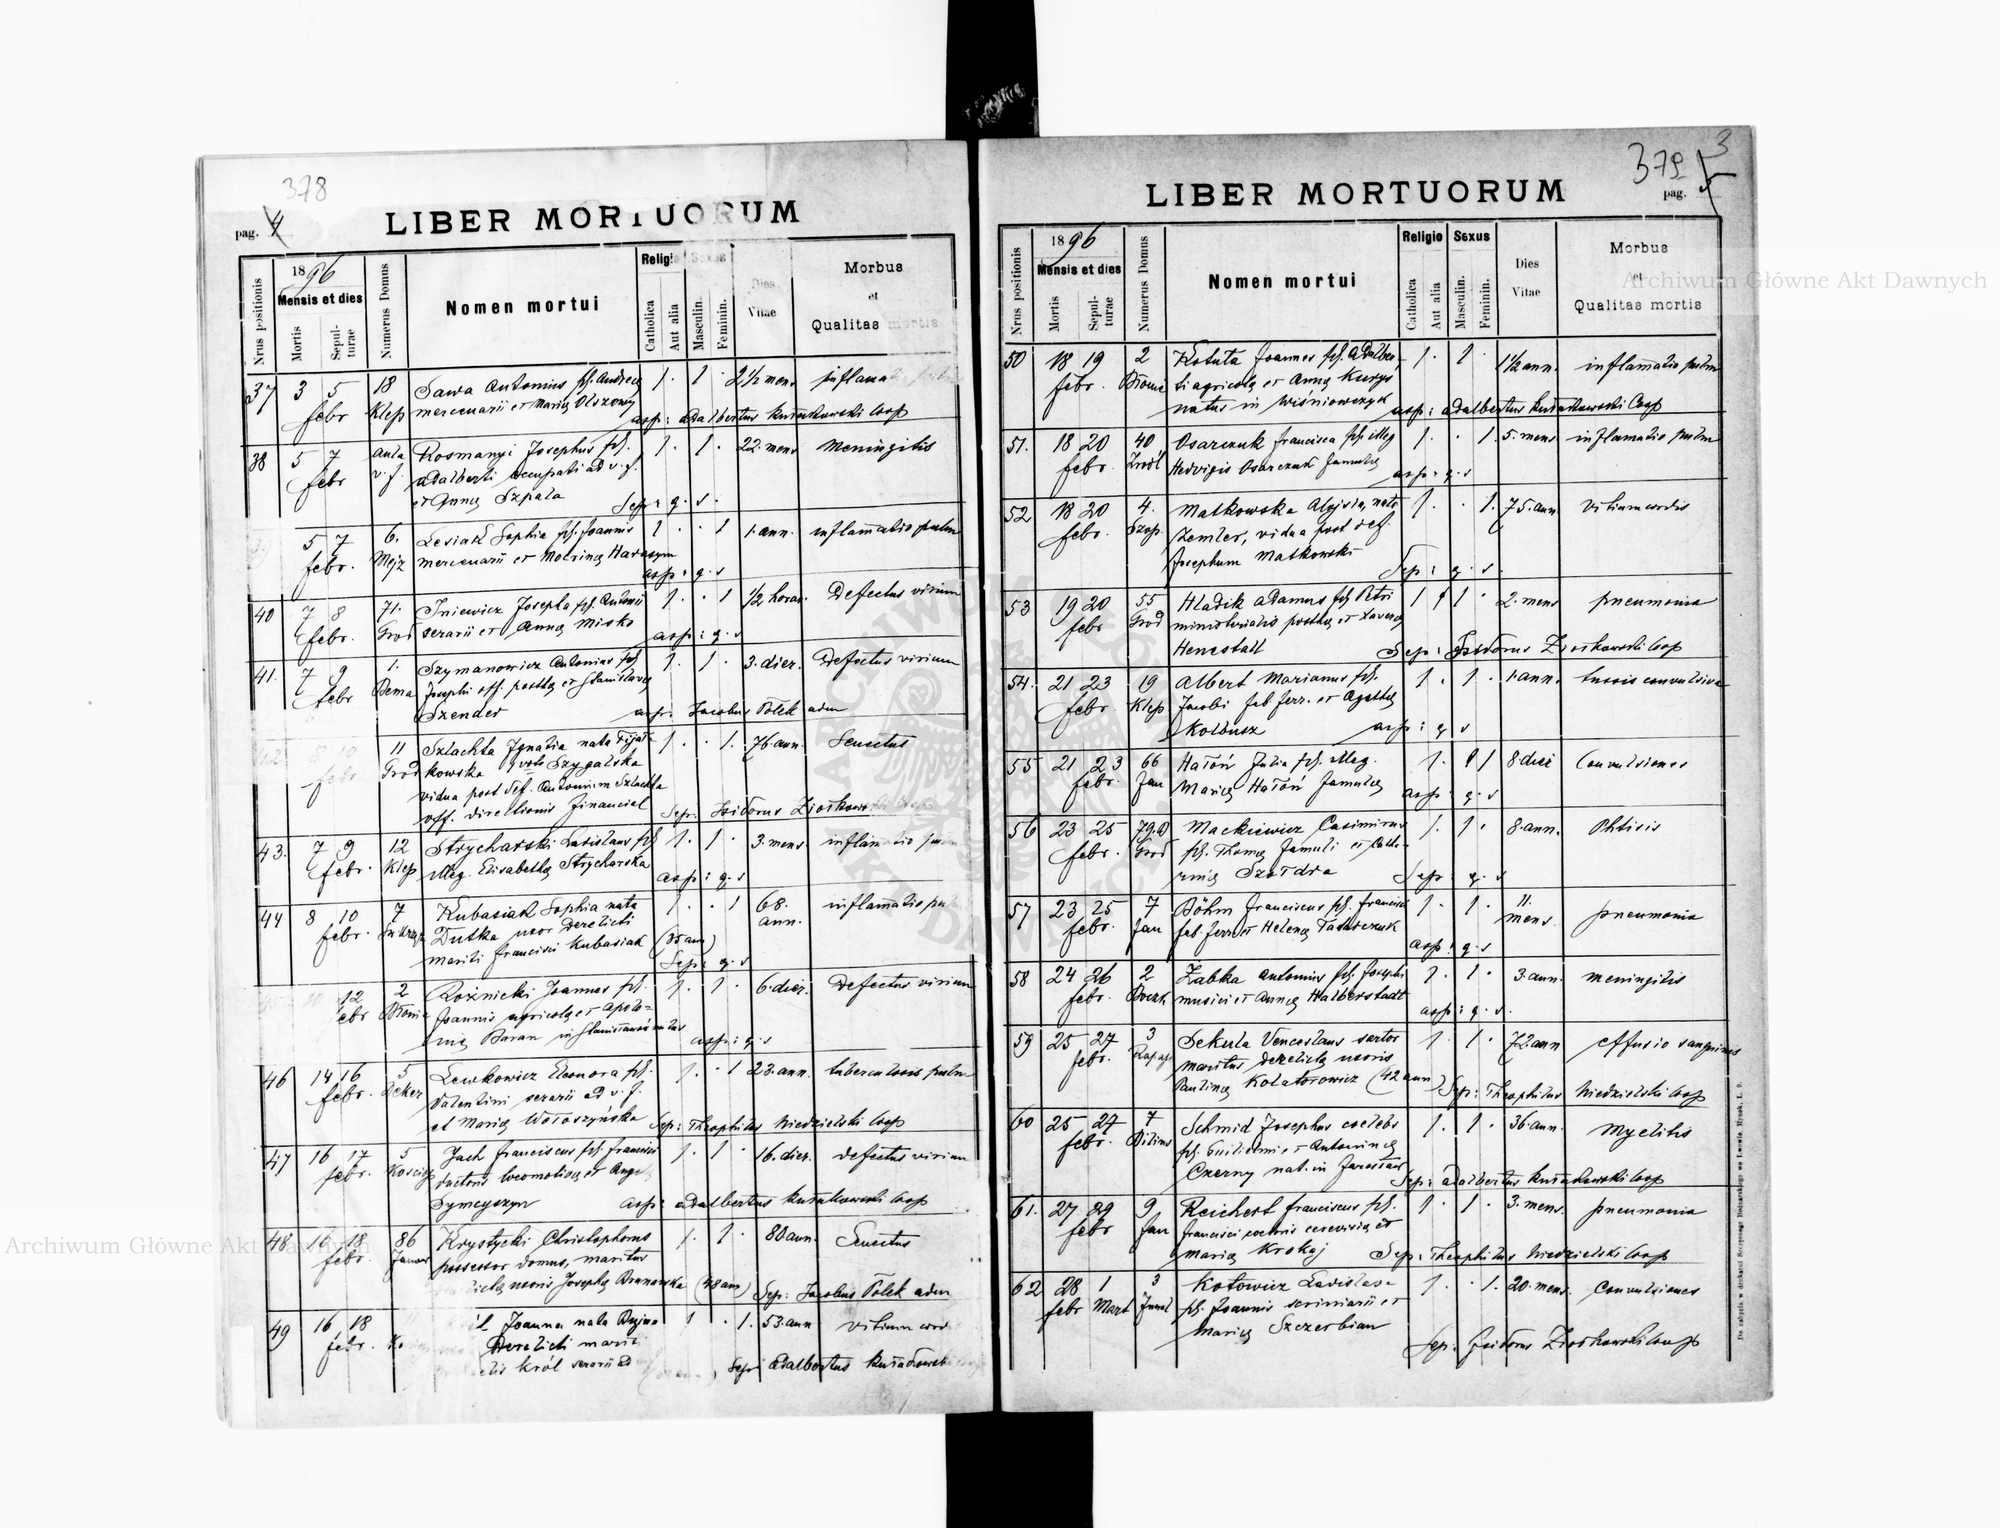 378
pag. 4
LIBER MORTUORUM
Nrus positionis
1896
Mensis et dies
Mortis
Sepulturae
Numerus Domus
Nomen mortui
Religio
Sexus
Catholica
Aut alia
Masculin.
Feminin.
Dies
Vitae
Morbus
et
Qualitas mortis
37 3 5 18 Sawa Antonius fil. Andreae 1 1 2½ mens. inflamatio
febr Klep mercenarii et Mariae Olszowy
asp: Adalbertus Kusiakowski Coop
38 5 7 aula Rosmanyi Josephus fil. 1 1 22. mens meningitis
febr v. f. Adalberti occupati ad v. f.
et Annae Szpala
Sep: q. s.
5 7 6. Lesiak Sophia fil. Joannis 1 1 1. ann. inflamatio pulm
febr. Mejz mercenarii et Harasym
asp: q. s
40 7 8 71. Iniewicz Josepha fil. Antonii 1 1 ½ horae. Defectus virium
febr. Grod serarii et Annae Misko
asp: q. s
41. 7 9 1. Szymanowicz Antonius fil. 1 1 3. dier. Defectus virium
febr Bema Josephi off. postae et Stanislavae
Szender
asp: Jacobus Polek adm
42 8 10 11 Szlachta Ignatia nata Fijał- 1 1. 76. ann. Senectus
febr Grod kowska 1 voto Szygalska
vidua post def. Antonium Szlachta
off. directionis financial
Sep: Isidorus Ziołkowski Coop
43. 7 9 12 Strycharski Ladislaus fil 1 1 3. mens. inflamatio pulm
febr. Klep illeg. Elisabethae Strycharska
asp: q. s
44 8 10 7 Kubasiak Sophia nata 1 1 68. inflamatio pul
febr. Dutka uxor derelicti ann.
mariti Francisci Kubasiak (35 ann)
Sep: q. s
12 2 Roznicki Joannes fil. 1 1 6. dier. Defectus virium
ebr Błonie Joannis agricolae et Apolo-
niae Baran in natus
asp: q. s
46 14 16 5 Lewkowicz Eleonora fil. 1 1 23. ann. tuberculosis pulm
febr. Valentini serarii ad v. f.
et Mariae Wołoszyńska
Sep: Theophilus Niedzielski Coop
47 16 17 5 Jach Franciscus fil. Francisci 1 1 16. dier. defectus virium
febr. Kościey ductoris locomotivae et Angelae
Symczyszyn
asp: Adalbertus Kusiakowski Coop
48 16 18 86 Krystycki Christophorus 1 1 80 ann. Senectus
febr. Janow possessor domus, maritus
uxoris Josephae Brunawska (48 ann)
Sep: Jacobus Polek adm
49 16 18 Joanna nata 1 1. 53. ann vitium cord
febr. Derelicti mariti
Król serarii ad
Sep: Adalbertus Kusiakowski
379 3
pag. 5
LIBER MORTUORUM
Nrus positionis
1896
Mensis et dies
Mortis
Sepulturae
Numerus Domus
Nomen mortui
Religio
Sexus
Catholica
Aut alia
Masculin.
Feminin.
Dies
Vitae
Morbus
et
Qualitas mortis
50 18 19 2 Kotuta Joannes fil. Adalber- 1 1 1½ ann. inflamatio pulm
febr. Błonie ti agricolae et Annae Kurys
natus in Wiśniowczyk
asp: Adalbertus Kusiakowski Coop
51. 18 20 40 Osarczuk Francisca fil. illeg 1 1. 5. mens inflamatio pulm
febr. Źródl Hedvigis Osarczuk famulae
asp: q. s
52 18 20 4. Matkowska Aloysia, nata 1 1. 75. ann. vitium cordis
febr. Szop. Zemler, vidua post def.
Josephum Matkowski
Sep: q. s
53 19 20 55 Hladik Adamus fil. Petri 1 1 2. mens pneumonia
febr Grod ministerialis postae et Xaverae
Henestall
Sep: Isidorus Ziołkowski Coop
54. 21 23 19 Albert Marianus fil. 1 1 1. ann. tussis convulsiva
febr. Klep Jacobi fab. ferr. et Agathae
Kolbusz
asp: q s
55 21 23 66 Hałoń Julia fil. illeg. 1 1 8. dier Convulsiones
febr. Jan Mariae Hałoń famulae
asp: q. s
56 23 25 79.a Mackiewicz Casimirus 1 1 8. ann. Phtisis
febr. Grod fil. Thomae famuli et Cathe-
rinae Szałdra
Sep: q. s
57 23 25 7 Böhm Franciscus fil. Francisci 1 1 11. pneumonia
febr. Jan fab. ferr. et Helenae mens.
asp: q. s
58 24 26 2 Zabka Antonius fil. Josephi 1 1 3. ann. meningitis
febr. musici et Annae Halberstadt
asp: q. s.
59 25 27 3 Sekula Venceslaus sartor 1 1 72. ann effusio sanguinis
febr. maritus derelictae uxoris
Paulinae Kolatorowicz (42 ann)
Sep: Theophilus Niedzielski Coop
60 25 27 7 Schmid Josephus coelebs 1 1 36. ann. Myelitis
febr. Bilins fil. Guilielmi et Antoninae
Czerny nat. in Jarosław
Sep: Adalbertus Kusiakowski Coop
61. 27 29 9 Reichert Franciscus fil. 1 1 3. mens. pneumonia
febr Jan Francisci coctoris cerevisiae et
Mariae Krokaj
Sep: Theophilus Niedzielski Coop
62 28 1 3 Kotowicz Ladislaa 1 1. 20. mens. Convulsiones
febr Mart fil. Joannis scriniarii et
Mariae Szczerbian
Sep: Isidorus Ziołkowski Coop
Archiwum Główne Akt Dawnych
Archiwum Główne Akt Dawnych